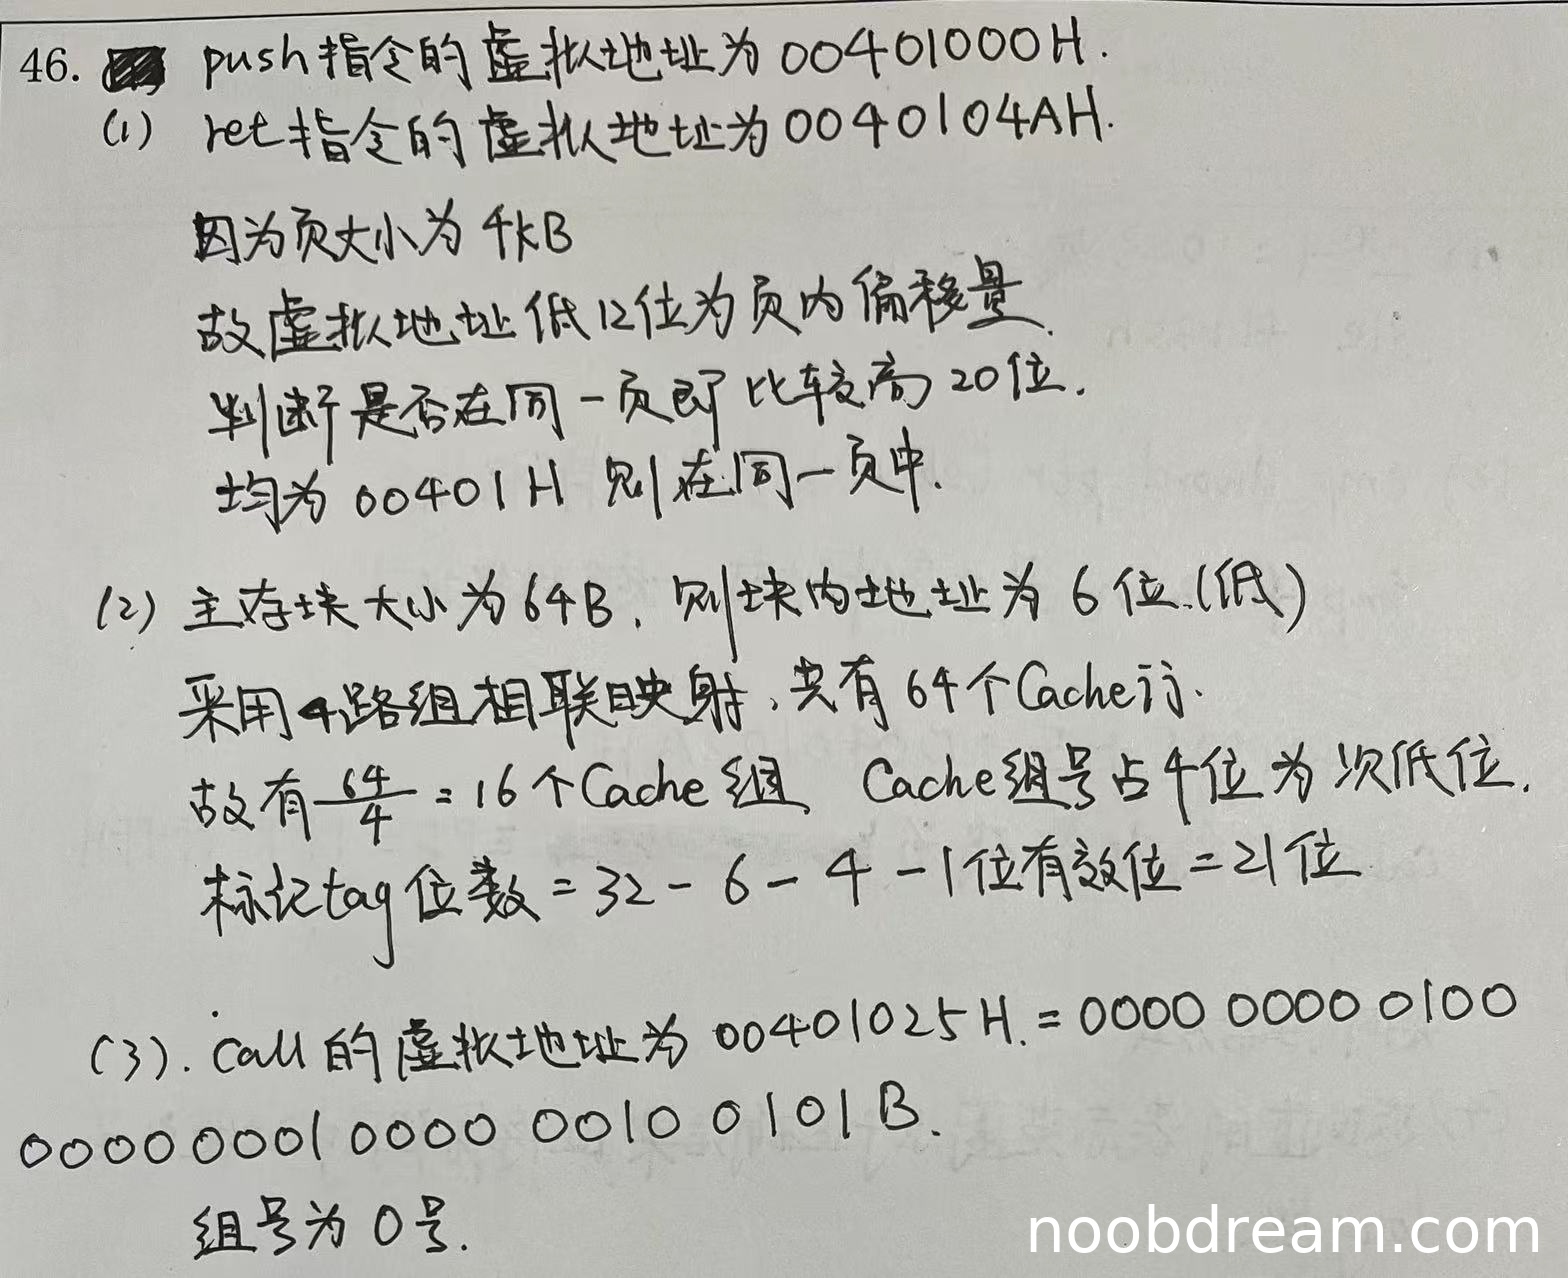 46. push指令的虚拟地址为00401000H.
(1) ret指令的虚拟地址为0040104AH.
因为页大小为4kB
故虚拟地址低12位为页内偏移量.
判断是否在同一页即比较高20位.
均为00401H 则在同一页中.
(2) 主存块大小为64B, 则块内地址为6位.(低)
采用4路组相联映射,共有64个Cache行.
故有64/4=16个Cache组, Cache组号占4位为次低位.
标记tag位数=32-6-4-1位有效位=21位
(3). call的虚拟地址为00401025H.=0000 0000 0100
0000 0001 0000 0010 0101B.
组号为0号.
noobdream.com